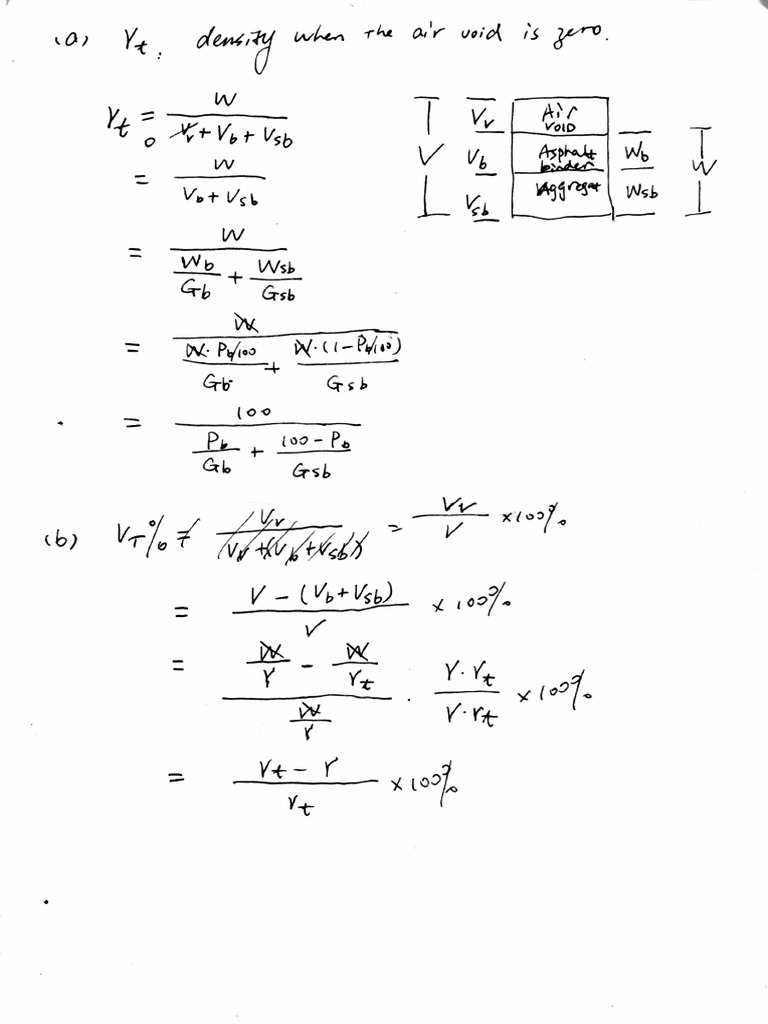 (a) γt: density when the air void is zero.
γt = W / (Vv + Vb + Vsb)
0
= W / (Vb + Vsb)
= W / (Wb/Gb + Wsb/Gsb)
= W / (W·Pb/100 / Gb + W·(1-Pb/100) / Gsb)
= 100 / (Pb/Gb + (100-Pb)/Gsb)
Vv Air VOID
V Vb Asphalt binder Wb W
Vsb Aggregat Wsb
(b) VT% = Vv / (Vv+(Vb+Vsb)) = Vv/V ×100%
= (V-(Vb+Vsb)) / V ×100%
= (W/γ - W/γt) / (W/γ) · (γ·γt)/(γ·γt) ×100%
= (γt-γ)/γt ×100%